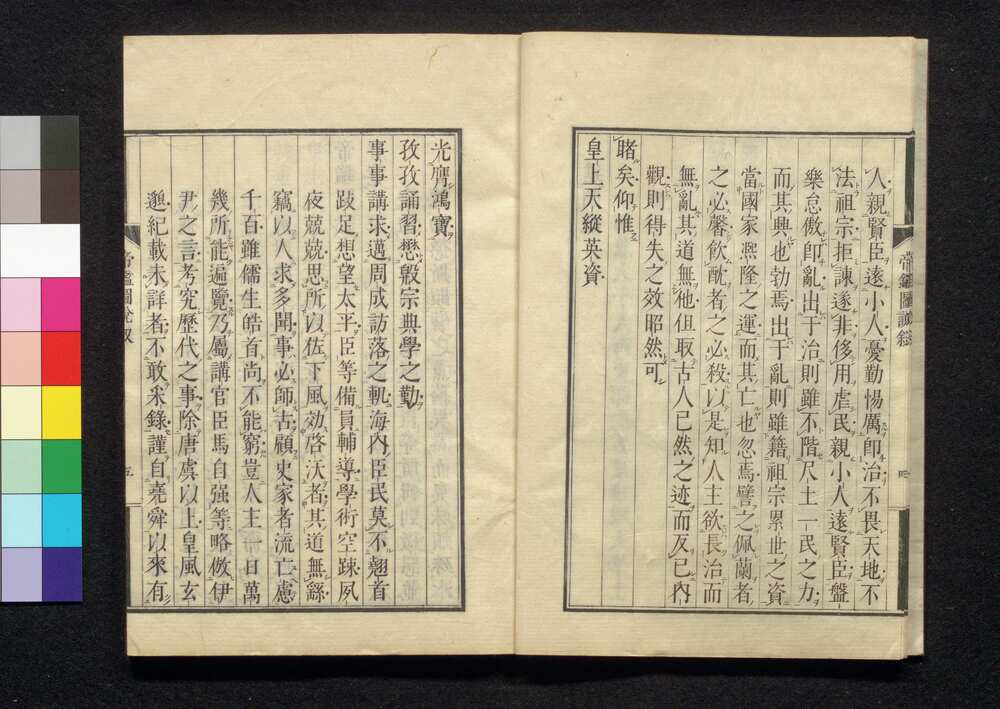 人親賢臣遠小人憂勤惕厲卽治不畏天地不
法祖宗拒諫遂非侈用虐民親小人遠賢臣盤
樂怠傲卽亂出于治則雖不階尺土一民之力
而其興也勃焉出于亂則雖籍祖宗累世之資
當國家熙隆之運而其亡也忽焉譬之佩蘭者
之必馨飲酖者之必殺以是知人主欲長治而
無亂其道無他但取古人已然之迹而反已內
觀則得失之效昭然可
睹矣仰惟
皇上天縱英資
帝鑑圖說叙
四
光膺鴻寶
孜孜誦習懋殷宗典學之勤
事事講求邁周成訪落之軌海內臣民莫不翹首
跂足想望太平臣等備員輔導學術空踈夙
夜兢兢思所以佐下風効啓沃者其道無繇
竊以人求多聞事必師古顧史家者流亡慮
千百雖儒生皓首尚不能窮豈人主一日萬
幾所能遍覽乃屬講官臣馬自强等略倣伊
尹之言考究歷代之事除唐虞以上皇風玄
邈紀載未詳者不敢采錄謹自堯舜以來有
帝鑑圖說叙
五